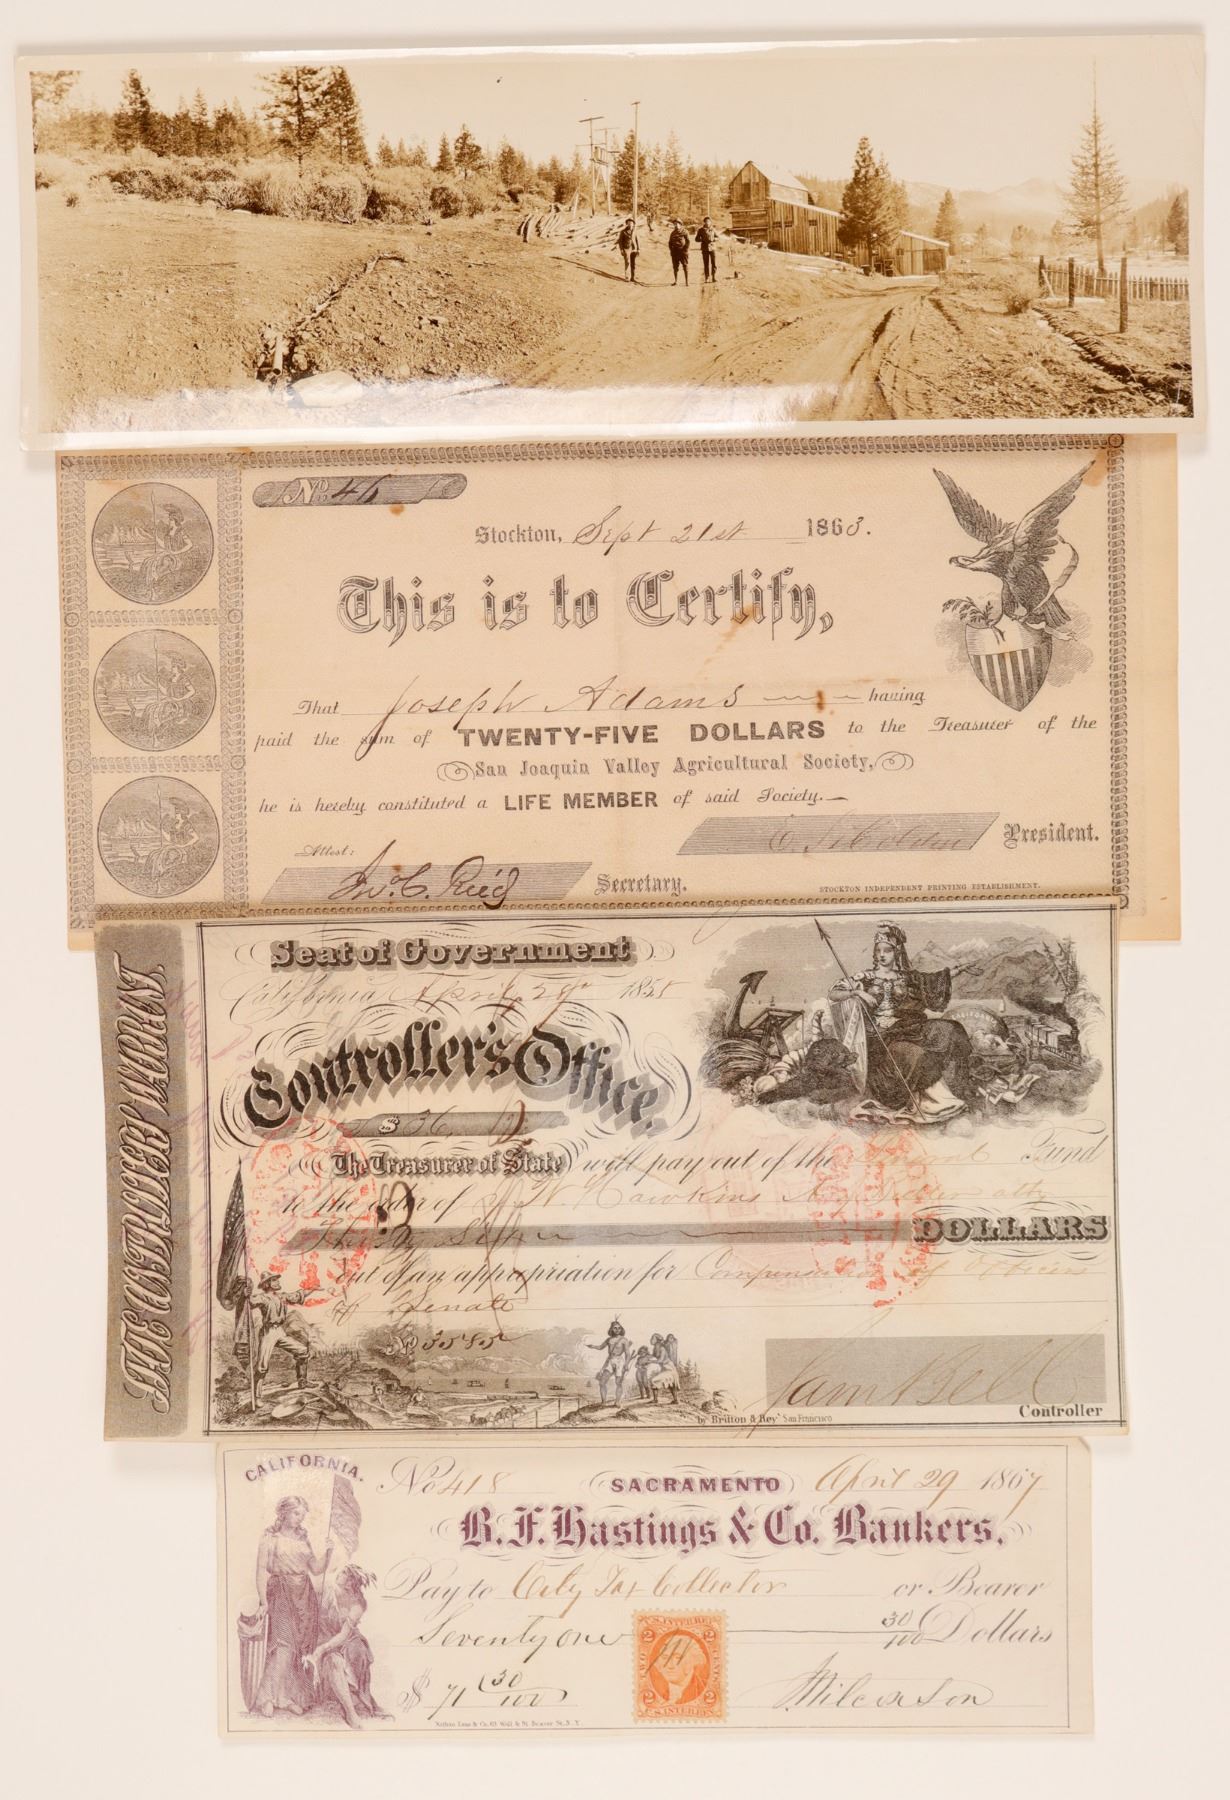 No. 46
Stockton, Sept 21st 1863.
This is to Certify,
That Joseph Adams having
paid the sum of TWENTY-FIVE DOLLARS to the Treasurer of the
San Joaquin Valley Agricultural Society,
he is hereby constituted a LIFE MEMBER of said Society.
President.
Attest:
Secretary.
STOCKTON INDEPENDENT PRINTING ESTABLISHMENT.
WARRANT.
Seat of Government
California April 29th 1855
Controller's Office.
$36
The Treasurer of State will pay out of the Fund
to the order of Hawkins
Thirty Six DOLLARS
out of an appropriation for Compensation of Officers
of Senate
No 3585
Sam Bell
by Britton & Rey San Francisco
Controller
CALIFORNIA.
No 418 SACRAMENTO April 29 1867
B. F. Hastings & Co. Bankers,
Pay to City Tax Collector or Bearer
Seventy one 30/100 Dollars
$ 71 30/100
2 U.S. INTER. REV. 2
TWO CENTS
H
2 U.S. INTER. REV. 2
J Wilcoxson